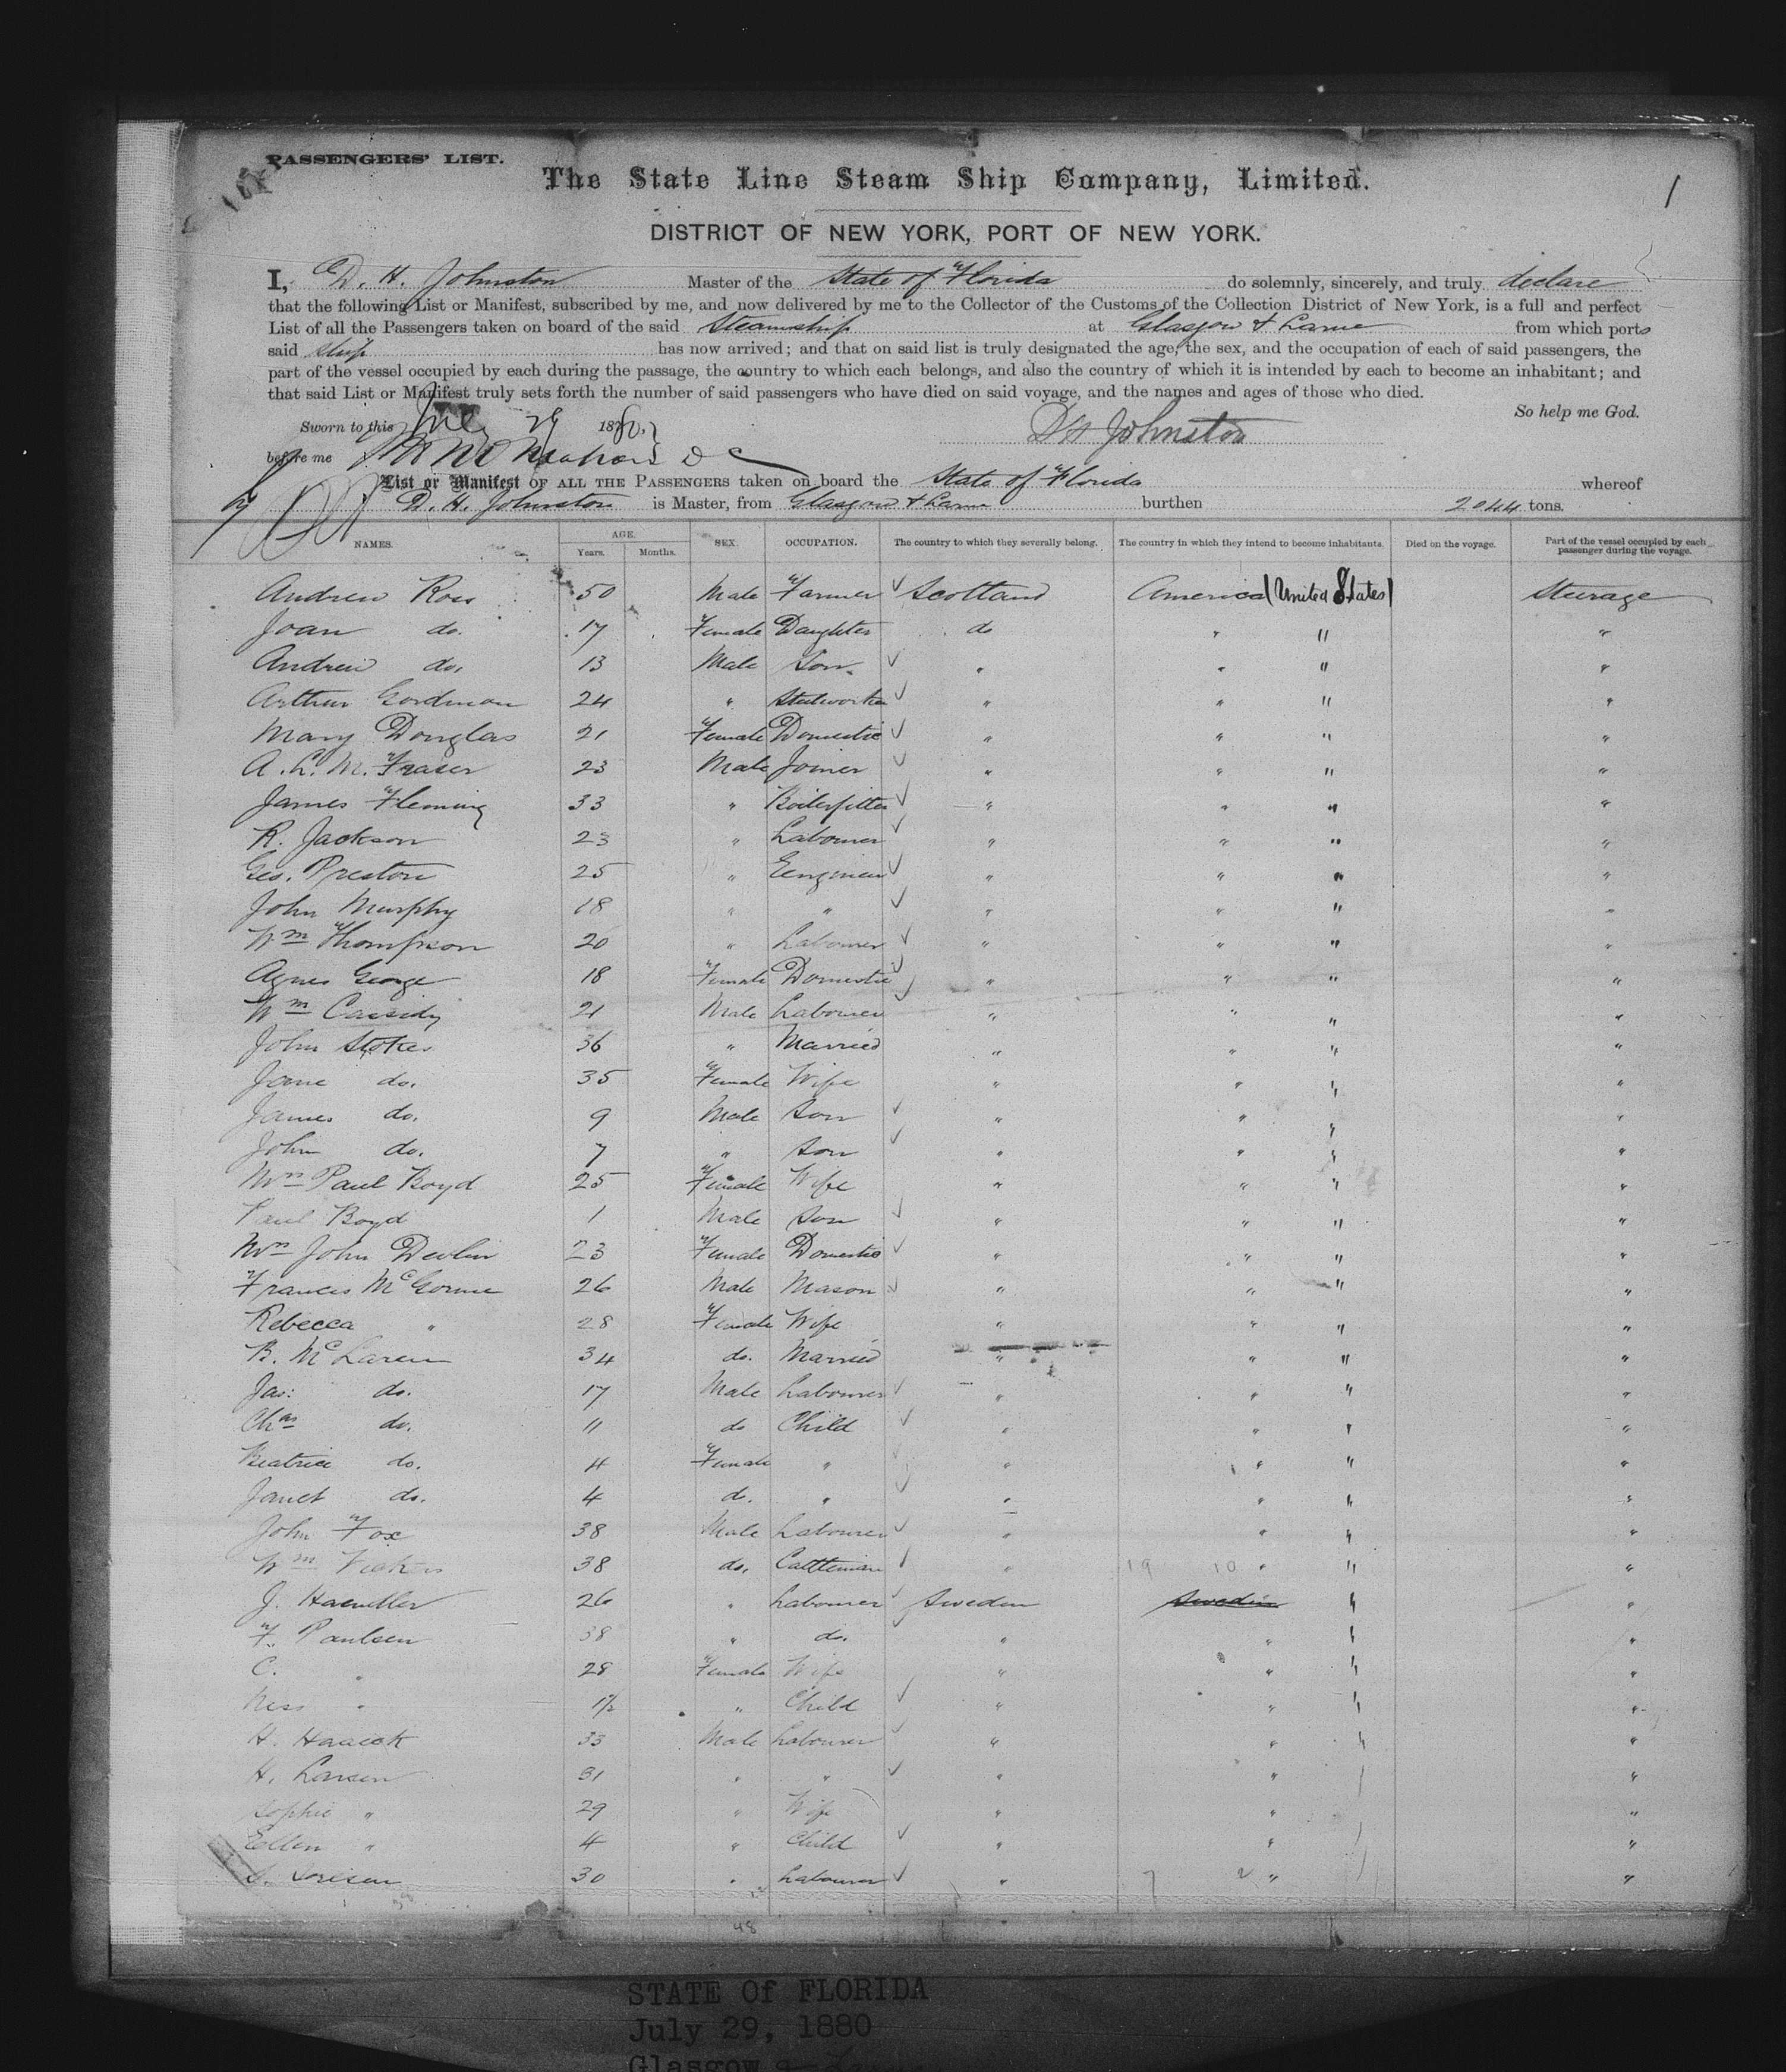 PASSENGERS' LIST.
1
The State Line Steam Ship Company, Limited.
DISTRICT OF NEW YORK, PORT OF NEW YORK.
I, D. H. Johnston Master of the State of Florida do solemnly, sincerely, and truly declare
that the following List or Manifest, subscribed by me, and now delivered by me to the Collector of the Customs of the Collection District of New York, is a full and perfect
List of all the Passengers taken on board of the said Steamship at Glasgow & Larne from which ports
said ship has now arrived; and that on said list is truly designated the age, the sex, and the occupation of each of said passengers, the
part of the vessel occupied by each during the passage, the country to which each belongs, and also the country of which it is intended by each to become an inhabitant; and
that said List or Manifest truly sets forth the number of said passengers who have died on said voyage, and the names and ages of those who died.
So help me God.
Sworn to this July 29 1880,
D H Johnston
before me
List or Manifest OF ALL THE PASSENGERS taken on board the State of Florida whereof
D. H. Johnston is Master, from Glasgow & Larne burthen 2044 tons.
NAMES. AGE. Years. Months. SEX. OCCUPATION. The country to which they severally belong. The country in which they intend to become inhabitants. Died on the voyage. Part of the vessel occupied by each passenger during the voyage.
Andrew Ross 50 Male Farmer Scotland America (United States) Steerage
Joan do. 17 Female Daughter do " " "
Andrew do. 13 Male Son " " " "
Arthur Gordman 24 " Steelworker " " " "
Mary Douglas 21 Female Domestic " " " "
A. L. M. Fraser 23 Male Joiner " " " "
James Fleming 33 " Boilerfitter " " " "
R. Jackson 23 " Labourer " " " "
Geo. Preston 25 " Eengineer " " " "
John Murphy 18 " " " " " "
Wm Thompson 20 " Labourer " " " "
Agnes George 18 Female Domestic " " " "
Wm Cassidy 21 Male Labourer " " " "
John Stokes 36 " Married " " " "
Jane do. 35 Female Wife " " " "
James do. 9 Male Son " " " "
John do. 7 " Son " " " "
Mrs Paul Boyd 25 Female Wife " " " "
Paul Boyd 1 Male Son " " " "
Mrs John Devlin 23 Female Domestic " " " "
Francis McGorme 26 Male Mason " " " "
Rebecca " 28 Female Wife " " " "
B. McLaren 34 do. Married " " " "
Jas: do. 17 Male Labourer " " " "
Chas do. 11 do Child " " " "
Beatrice do. 4 Female " " " " "
Janet do. 4 d. " " " " "
John Fox 38 Male Labourer " " " "
Wm 38 do. Cattleman " 19 10 " " "
J. Haendler 26 " Labourer Sweden Sweden " "
F. Paulsen 38 " do. " " " "
C. " 28 Female Wife " " " "
Ness " 1½ " Child " " " "
H. Haaick 33 Male Labourer " " " "
H. Larsen 31 " " " " "
Sophie " 29 " Wife " " "
Ellen " 4 " Child " " "
S. 30 " Labourer " 7 2 " "
48
STATE Of FLORIDA
July 29, 1880
Glasgow &